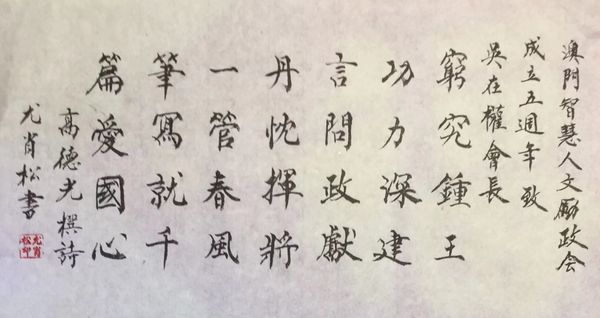 澳門智慧人文勵政会
成立五週年致
吳在權會長
窮究鍾王
功力深建
言問政獻
丹忱揮將
一管春風
筆寫就千
篇愛國心
高德光撰詩
尤肖松書
尤肖松印